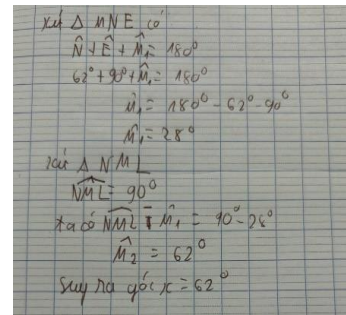 Xét Δ MNE có
N̂ + Ê + M̂₁ = 180⁰
62⁰ + 90⁰ + M̂₁ = 180⁰
M̂₁ = 180⁰ - 62⁰ - 90⁰
M̂₁ = 28⁰
Xét Δ NML
NML = 90⁰
ta có NML - M̂₁ = 90⁰ - 28⁰
M̂₂ = 62⁰
Suy ra góc x = 62⁰